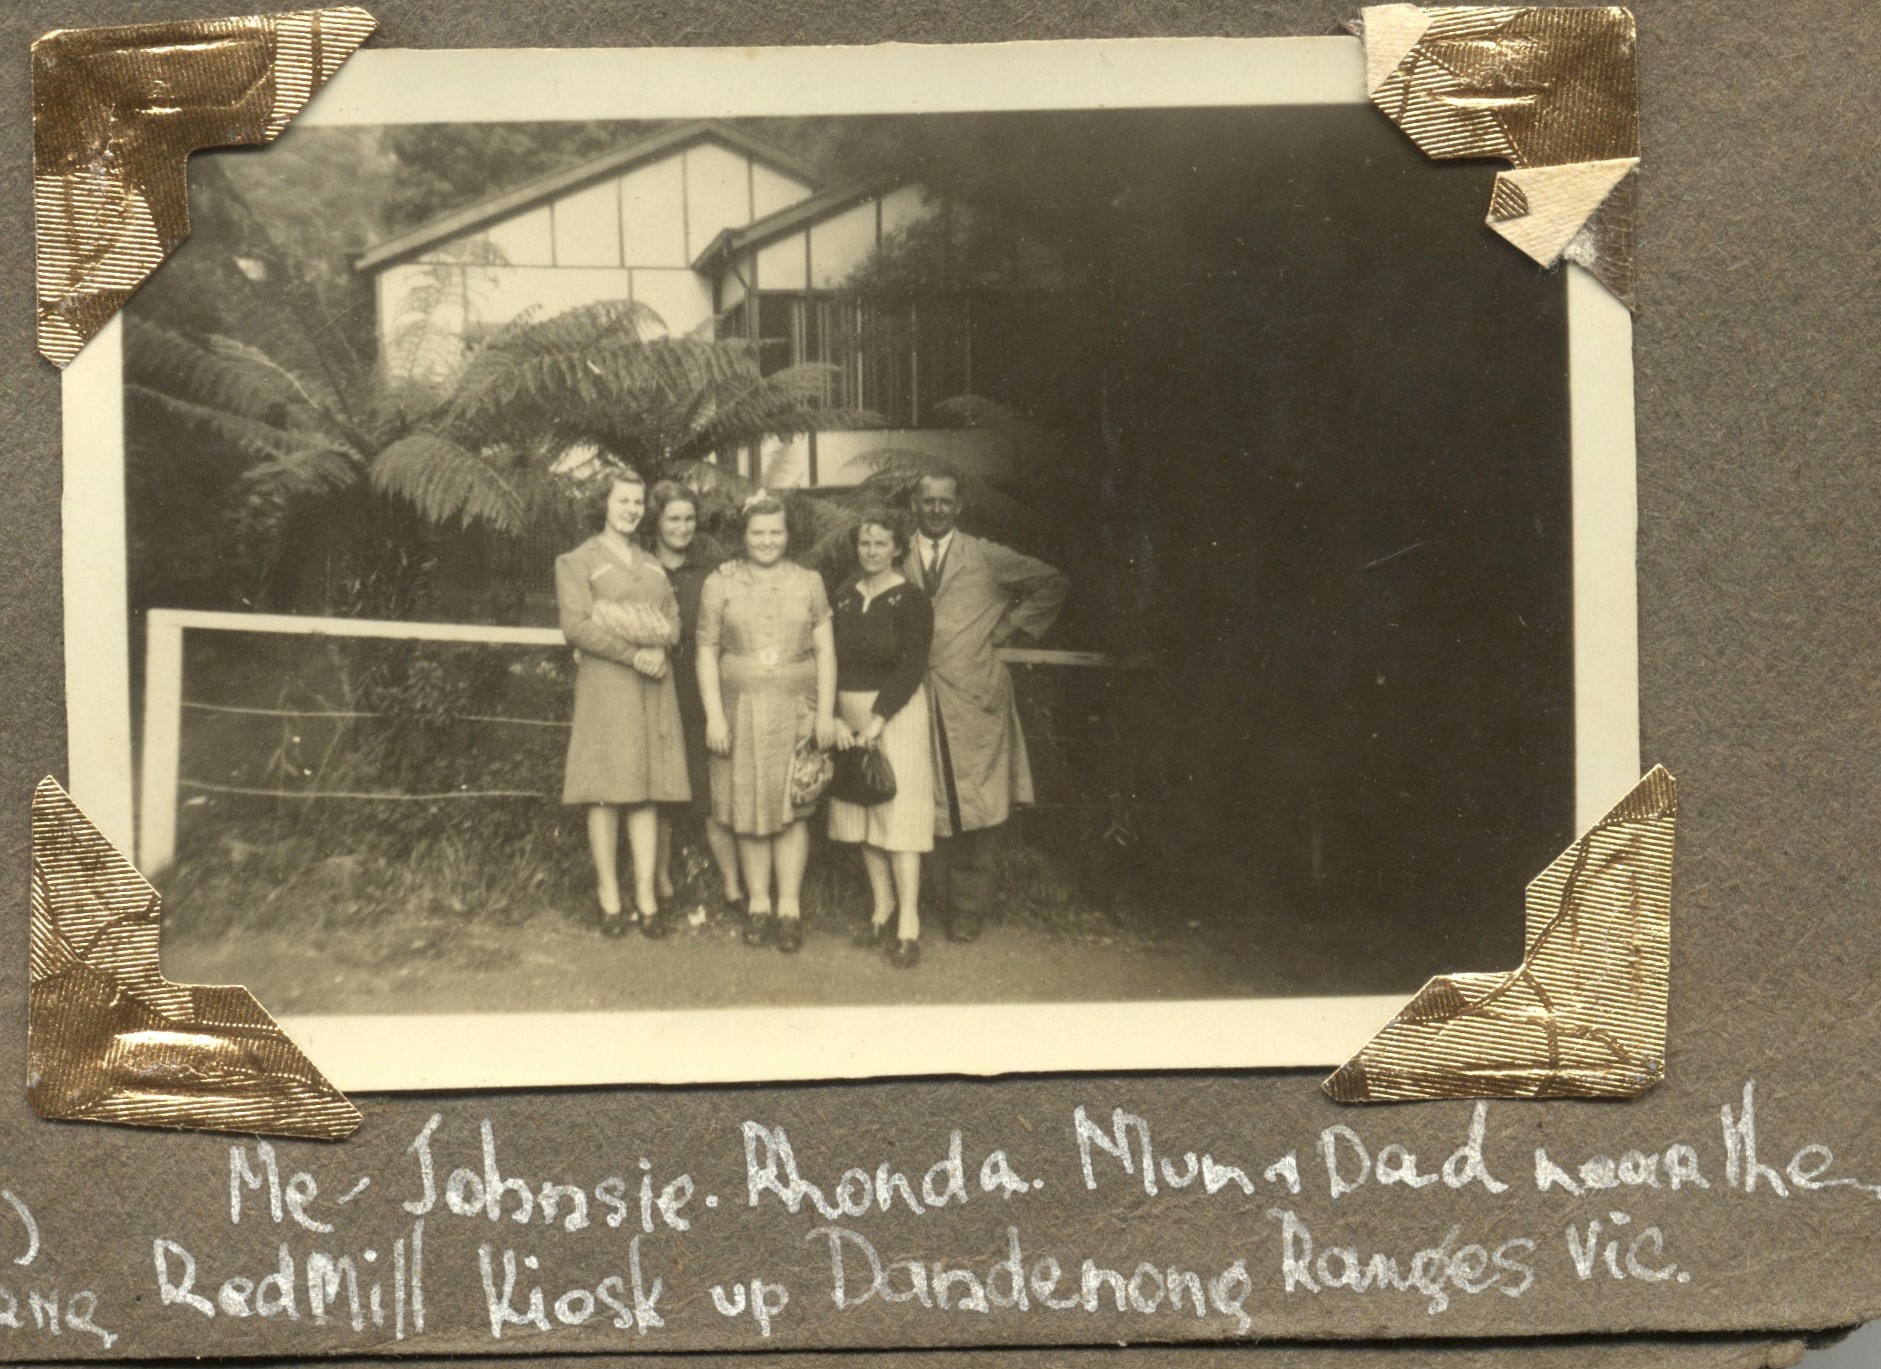 Me - Johnsie. Rhonda. Mum & Dad near the
Red Mill Kiosk up Dandenong Ranges Vic.